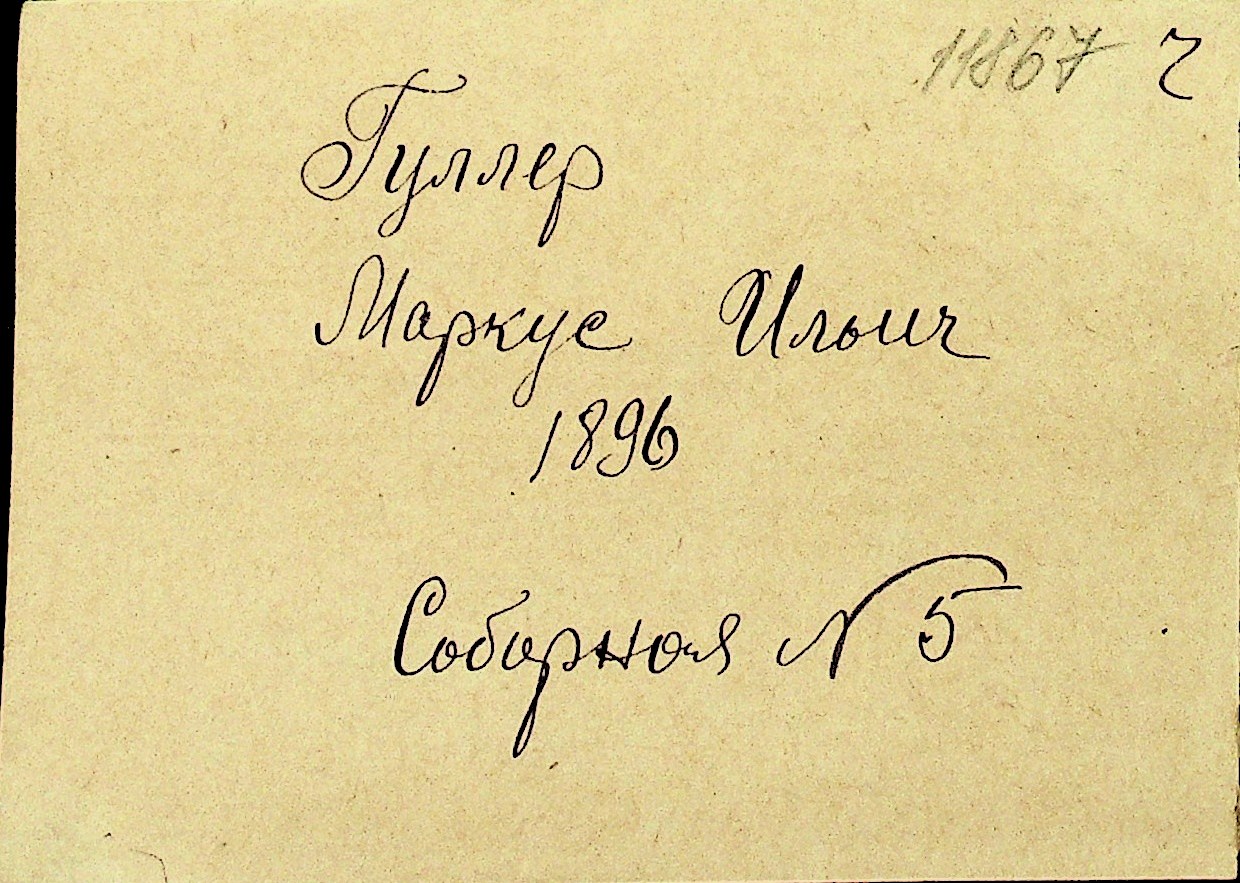 11867 ч
Гуллер
Маркус Ильич
1896
Соборная № 5